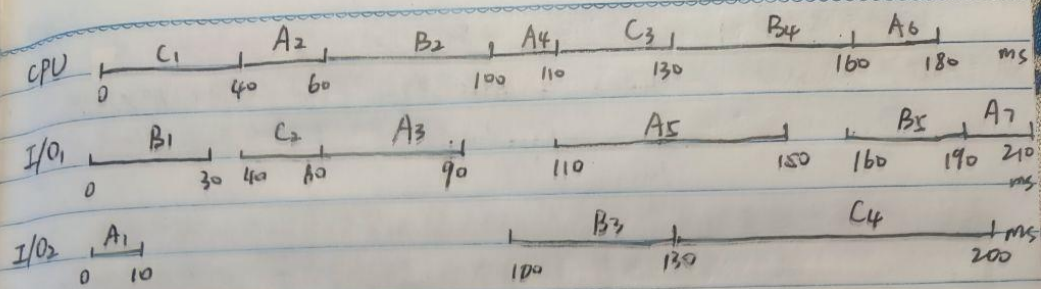 CPU C1 A2 B2 A4 C3 B4 A6 ms
0 40 60 100 110 130 160 180
I/O1 B1 C2 A3 A5 B5 A7
0 30 40 60 90 110 150 160 190 210 ms
I/O2 A1 B3 C4 ms
0 10 100 130 200